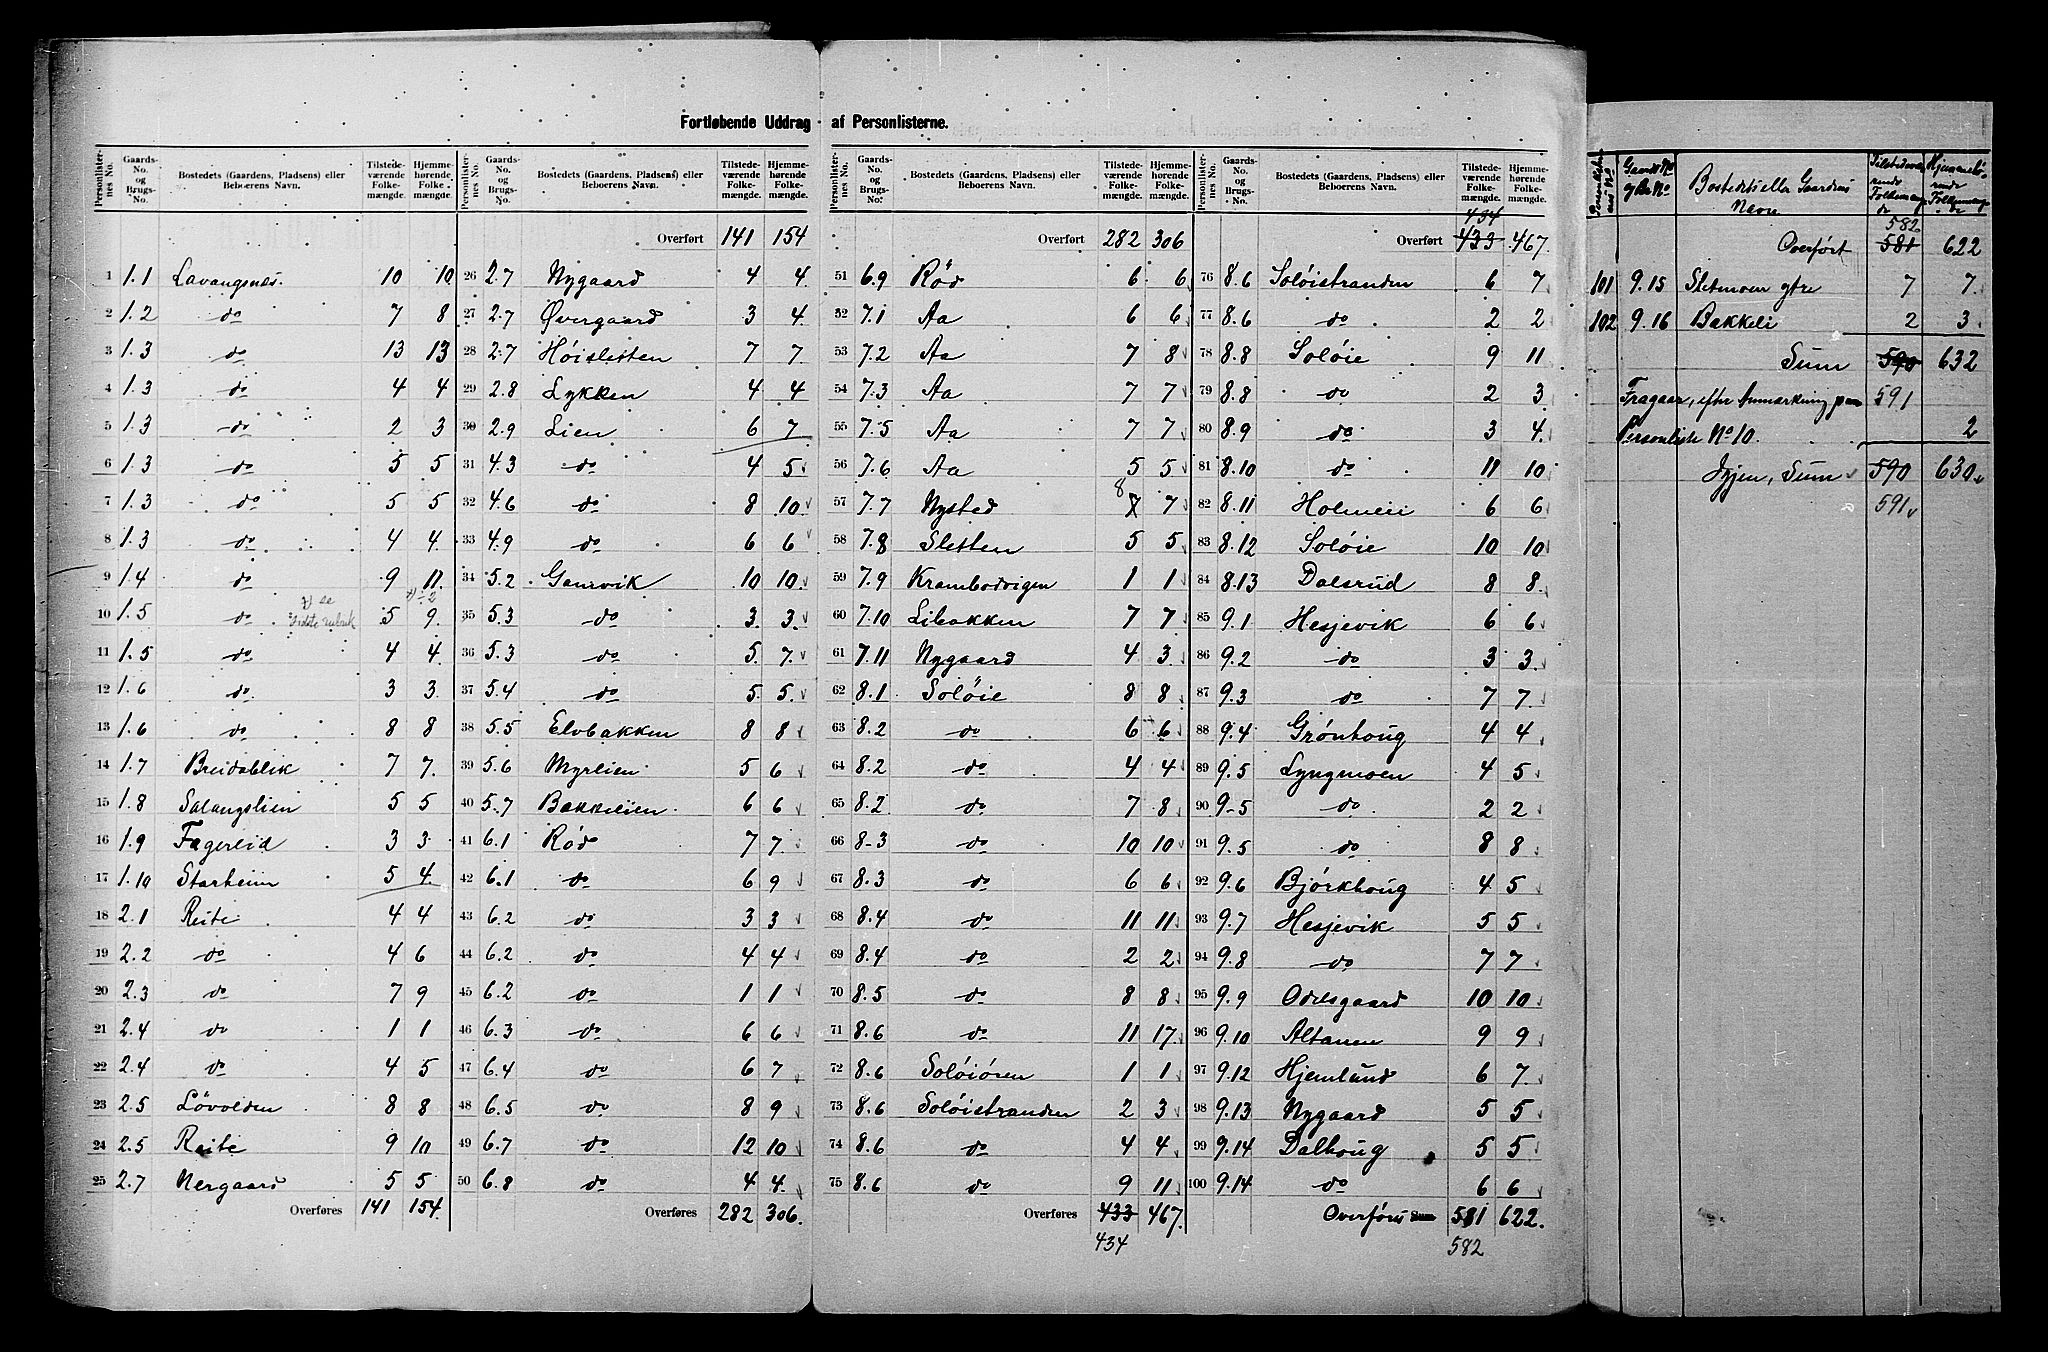 Fortløbende Uddrag af Personlisterne.
Personlister- nes No. | Gaards- No. og Brugs- No. | Bostedets (Gaardens, Pladsens) eller Beboerens Navn. | Tilstede- værende Folke- mængde. | Hjemme- hørende Folke- mængde.
1 1.1 Lavangsnes. 10 10
2 1.2 do 7 8
3 1.3 do 13 13
4 1.3 do 4 4
5 1.3 do 2 3
6 1.3 do 5 5
7 1.3 do 5 5
8 1.3 do 4 4.
9 1.4 do 9 11.
10 1.5 do 5 9.
11 1.5 do 4 4.
12 1.6 do 3 3.
13 1.6 do 8 8
14 1.7 Breidablik 7 7.
15 1.8 Salangslien 5 5
16 1.9 Fagerlid 3 3
17 1.10 Starheim 5 4.
18 2.1 Reite 4 4
19 2.2 do 4 6
20 2.3 do 7 9
21 2.4 do 1 1
22 2.4 do 4 5
23 2.5 Lövolden 8 8
24 2.5 Reite 9 10
25 2.7 Nergaard 5 5
Overføres 141 154.
Personlister- nes No. | Gaards- No. og Brugs- No. | Bostedets (Gaardens, Pladsens) eller Beboerens Navn. | Tilstede- værende Folke- mængde. | Hjemme- hørende Folke- mængde.
Overført 141 154
26 2.7 Nygaard 4 4
27 2.7 Øvergaard 3 4.
28 2.7 Høisletten 7 7.
29 2.8 Lykken 4 4
30 2.9 Lien 6 7
31 4.3 do 4 5
32 4.6 do 8 10.
33 4.9 do 6 6
34 5.2 Gamvik 10 10.
35 5.3 do 3. 3.
36 5.3 do 5. 7.
37 5.4 do 5. 5.
38 5.5 Elvbakken 8 8
39 5.6 Myrlien 5 6
40 5.7 Bakkelien. 6 6
41 6.1 Rød 7 7.
42 6.1 do 6 9
43 6.2 do 3 3
44 6.2 do 4 4
45 6.2 do 1 1
46 6.3 do 6 6
47 6.4 do 6 7
48 6.5 do 8 9
49 6.7 do 12 10
50 6.8 do 4 4.
Overføres 282 306.
Personlister- nes No. | Gaards- No. og Brugs- No. | Bostedets (Gaardens, Pladsens) eller Beboerens Navn. | Tilstede- værende Folke- mængde. | Hjemme- hørende Folke- mængde.
Overført 282 306
51 6.9 Rød 6 6
52 7.1 Aa 6 6
53 7.2 Aa 7 8
54 7.3 Aa 7 7
55 7.5 Aa 7 7
56 7.6 Aa 5 5
57 7.7 Nysted 7 8 7
58 7.8 Sletten 5 5
59 7.9 Krambodvigen 1 1
60 7.10 Libakken 7 7
61 7.11 Nygaard 4 3
62 8.1 Soløie 8 8
63 8.2 do 6 6
64 8.2 do 4 4
65 8.2 do 7 8
66 8-3 do 10 10
67 8.3 do 6 6
68 8.4 do 11 11
69 8.4 do 2 2
70 8.5 do 8 8
71 8.6 do 11 17
72 8.6 Solöiören 1 1
73 8.6 Solöistranden 2 3
74 8.6 do 4 4
75 8.6 do 9 11
Overføres 433 467.
434
Personlister- nes No. | Gaards- No. og Brugs- No. | Bostedets (Gaardens, Pladsens) eller Beboerens Navn. | Tilstede- værende Folke- mængde. | Hjemme- hørende Folke- mængde.
434
Overført 433 467.
76 8.6 Solöistranden 6 7
77 8.6 do 2 2
78 8.8 Solöie 9 11
79 8.8 do 2 3
80 8.9 do 3 4.
81 8.10 do 11 10
82 8.11 Holmen 6 6
83 8.12 Solöie 10 10
84 8.13 Dalsrud 8 8.
85 9.1 Hesjevik 6 6
86 9.2 do 3 3.
87 9.3 do 7 7.
88 9.4 Grönhoug 4 4
89 9.5 Lyngmoen 4 5
90 9-5 do 2 2
91 9.5 do 8 8
92 9.6 Björkhoug 4 5
93 9.7 Hesjevik 5 5
94 9.8 do 7 7
95 9.9 Odelsgaard 10 10
96 9.10 Altanen 9 9
97 9.12 Hjemlund 6 7
98 9.13 Nygaard 5 5
99 9.14 Dalhoug 5 5
100 9.14 do 6 6
Overføres Sum 581 622.
582
Gaards No og Br No | Bostedets eller Gaardens Navn | Tilstedeværende Folkemængde | Hjemmehørende Folkemængde
582
Overført 581 622
101 9.15 Sletmoen ytre 7 7.
102 9.16 Bakkeli 2 3.
Sum 590 632
Fragaar, efter Anmærkning paa 591
Personliste No 10. 2
Igjen, Sum 590 630
591